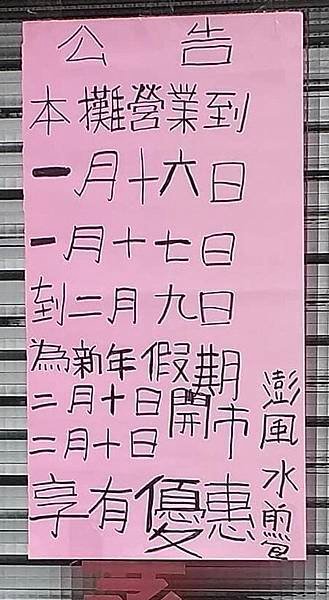 公告
本攤營業到
一月十六日
一月十七日
到二月九日
為新年假期
二月十日開市
二月十日
享有優惠
澎風水煎